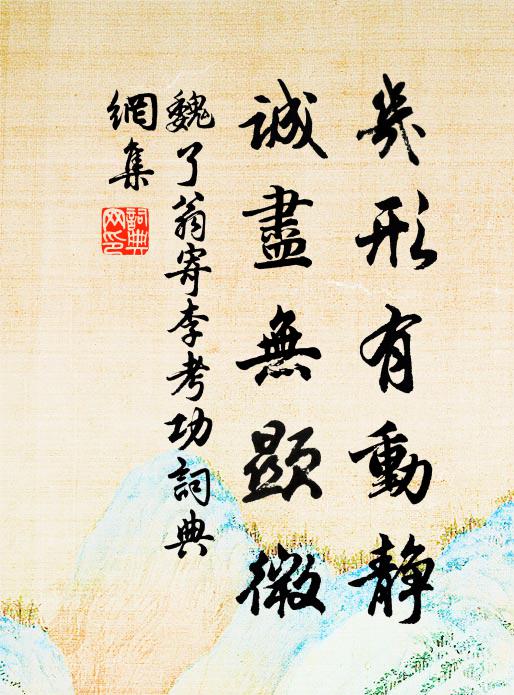 幾形有動静
誠盡無顯微
魏了翁寄李考功詞典
網集
詞典網印